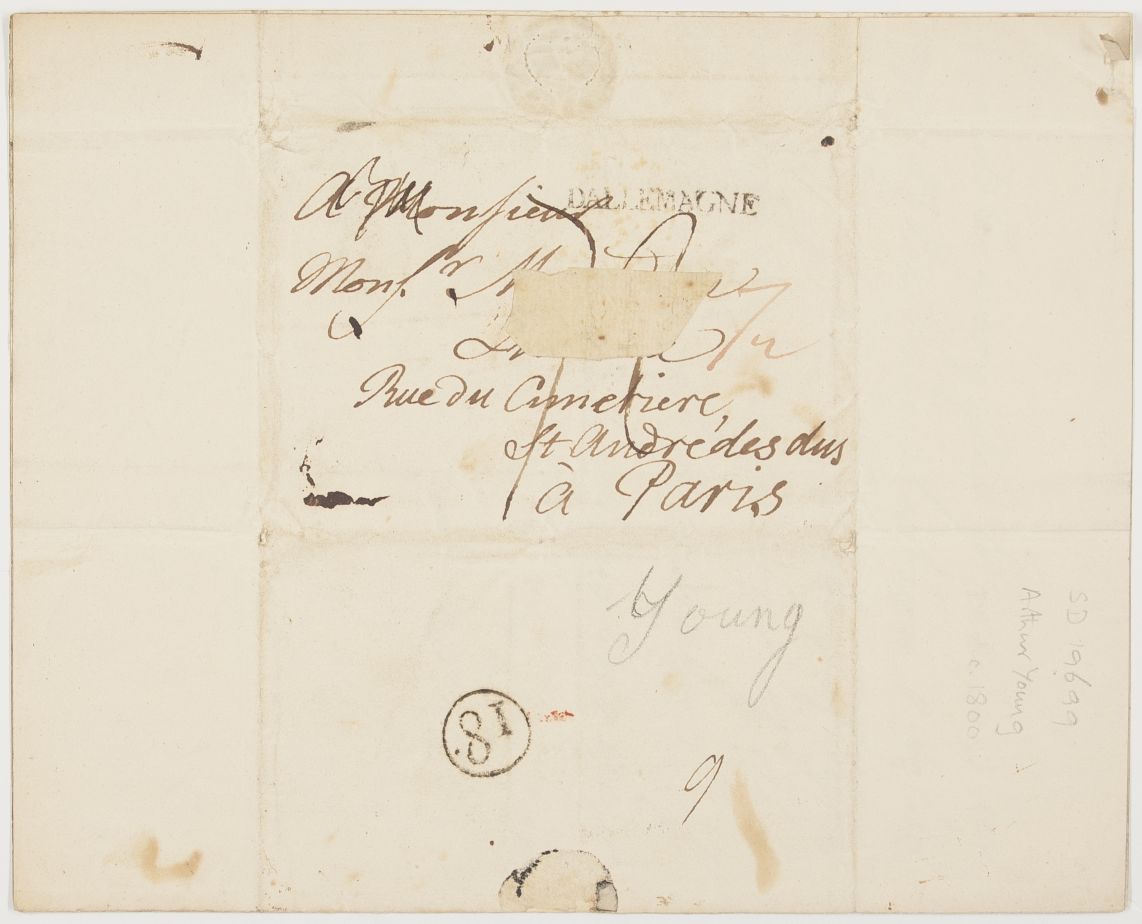 A Monsieur
DALLEMAGNE
Mons.r M
Rue du Cimetiere,
St André des dus
à Paris
Young
18.
9
SD 19699
Arthur Young
c. 1800